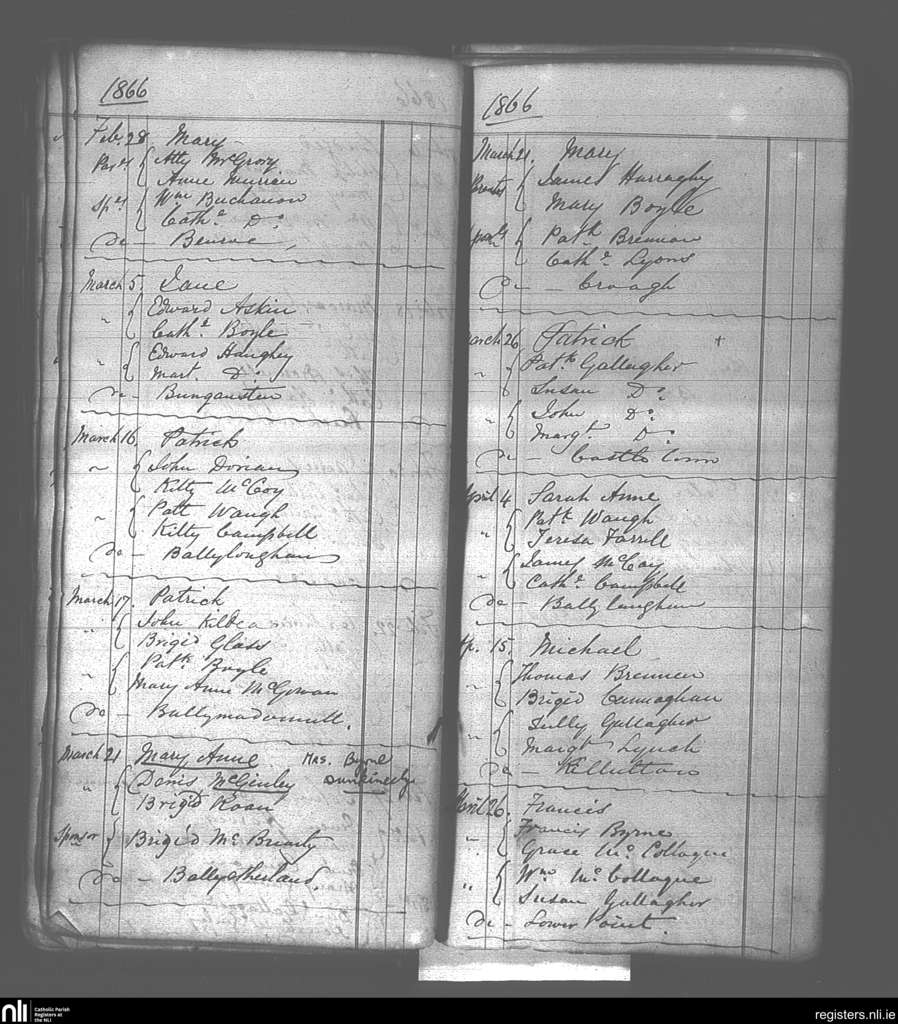 1866
Feb. 28. Mary
Par.ts { Atty McGrory
Anne Murrian
Sp.rs { Wm Buchanon
Cath.e Do
Do — Beurve
March 5. Jane
" { Edward Askin
Cath.e Boyle
" { Edward Haughey
Mart. Do
Do — Bungausteen
March 16. Patrick
" { John Dorian
Kitty McCoy
" { Patt Waugh
Kitty Campbell
Do — Ballyloughan
March 17. Patrick
" { John Kilbea
Brigid Glass
" { Patk Boyle
Mary Anne McGowan
Do — Ballymadonnell.
March 21 Mary Anne Mrs. Byrne
" { Denis McGinley Dunkineely
Brigid Roan
Sponsor { Brigid McBrearty
Do — Ballyederland.
1866
March 21. Mary
Parents { James Harraghy
Mary Boyle
Spon.rs { Patk Brennan
Cath.e Lyons
Do — Croagh
March 26. Patrick +
" { Patk Gallagher
Susan Do
" { John Do
Margt. Do
Do — Castletown
April 4 Sarah Anne
" { Patk Waugh
Teresa Farrell
" { James McCoy
Cath.e Campbell
Do — Ballylaughan
Ap. 15. Michael
" { Thomas Brennen
Brigid Cunnaghan
" { Tully Gallagher
Margt Lynch
Do — Killultan
April 26. Francis
" { Francis Byrne
Grace McCollague
" { Wm McCollague
Susan Gallagher
Do — Lower Point.
nli Catholic Parish Registers at the NLI
registers.nli.ie